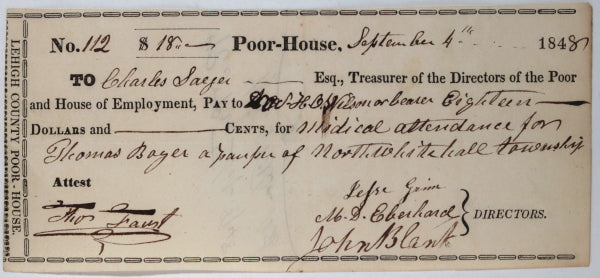 LEHIGH COUNTY POOR-HOUSE.
No. 112 $ 18 Poor-House, September 4th 1848
TO Charles Saeger Esq., Treasurer of the Directors of the Poor
and House of Employment, PAY to or bearer Eighteen
DOLLARS and CENTS, for Medical attendance for
Thomas Boyer a pauper of North whitehall township
Attest
Thos Faust
Jesse Grim
M. D. Eberhard
John Blank
DIRECTORS.